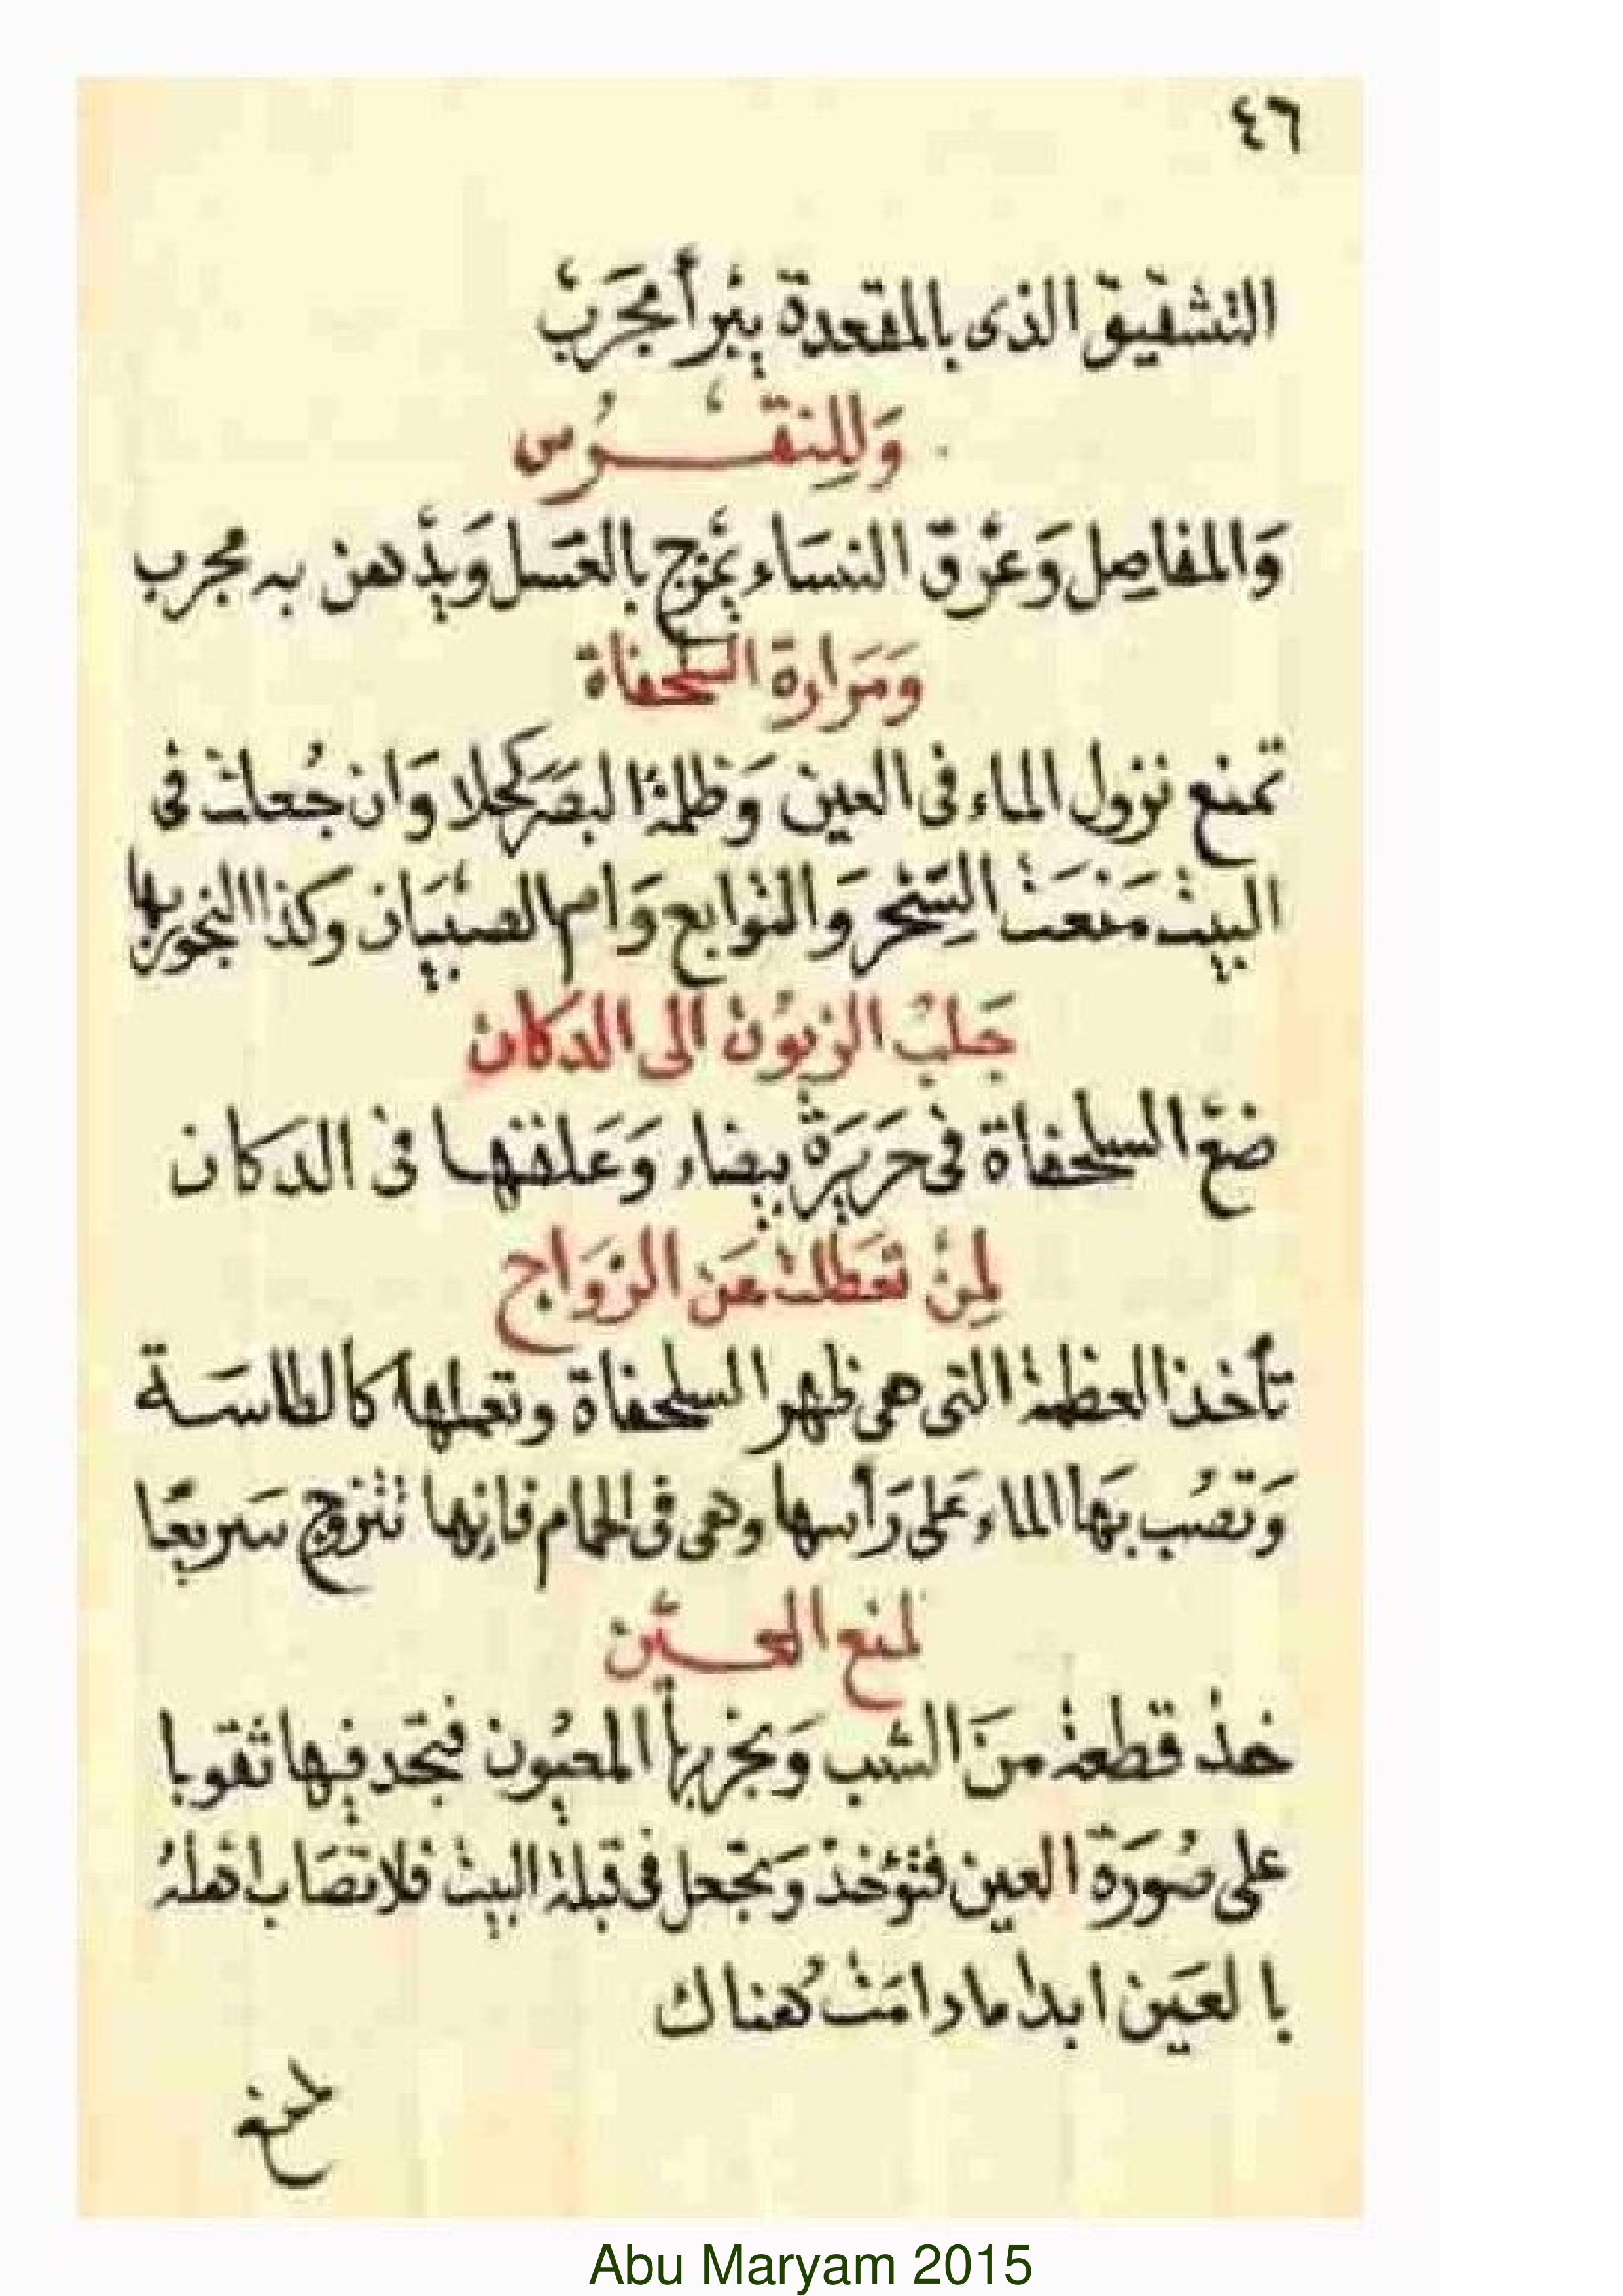 ٤٦
التشقيق الذى بالمقعدة يبرأ مجرب
وَللِنقرُس
وَالمفاصِل وَعرْق النسَاء يمزج بالعَسل وَيدهن به مجرب
وَمَرارة السلحفاة
تمنع نزول الماء فى العين وَظلمة البصَر كحلا وَان جُعلت فى
البيت مَنعَت السِّحْر وَالتوابع وَام الصبيَان وكذا البخور بها
جَلبْ الزبوُن الى الدكان
ضع السلحفاة فى حَريَرَة بيضاء وَعَلقها فى الدكان
لِمنْ تعَطلت عَن الزوَاج
تأخذ العظمة التى هى ظهر السلحفاة وتعملها كالطاسَة
وَتصُب بهَا الماء عَلى رَأسها وهى فى الحمام فانها تتزوج سَريعًا
لمنع العَين
خذ قطعة منَ الشب وَبخر بها المعيُون فتجد فيها ثقوبا
على صُورَة العين فتؤخذ وَتجْعل فى قبلة البيت فلا تصَاب اهلهُ
بالعَين ابدا ما دامَت هُناك
لمنع
Abu Maryam 2015